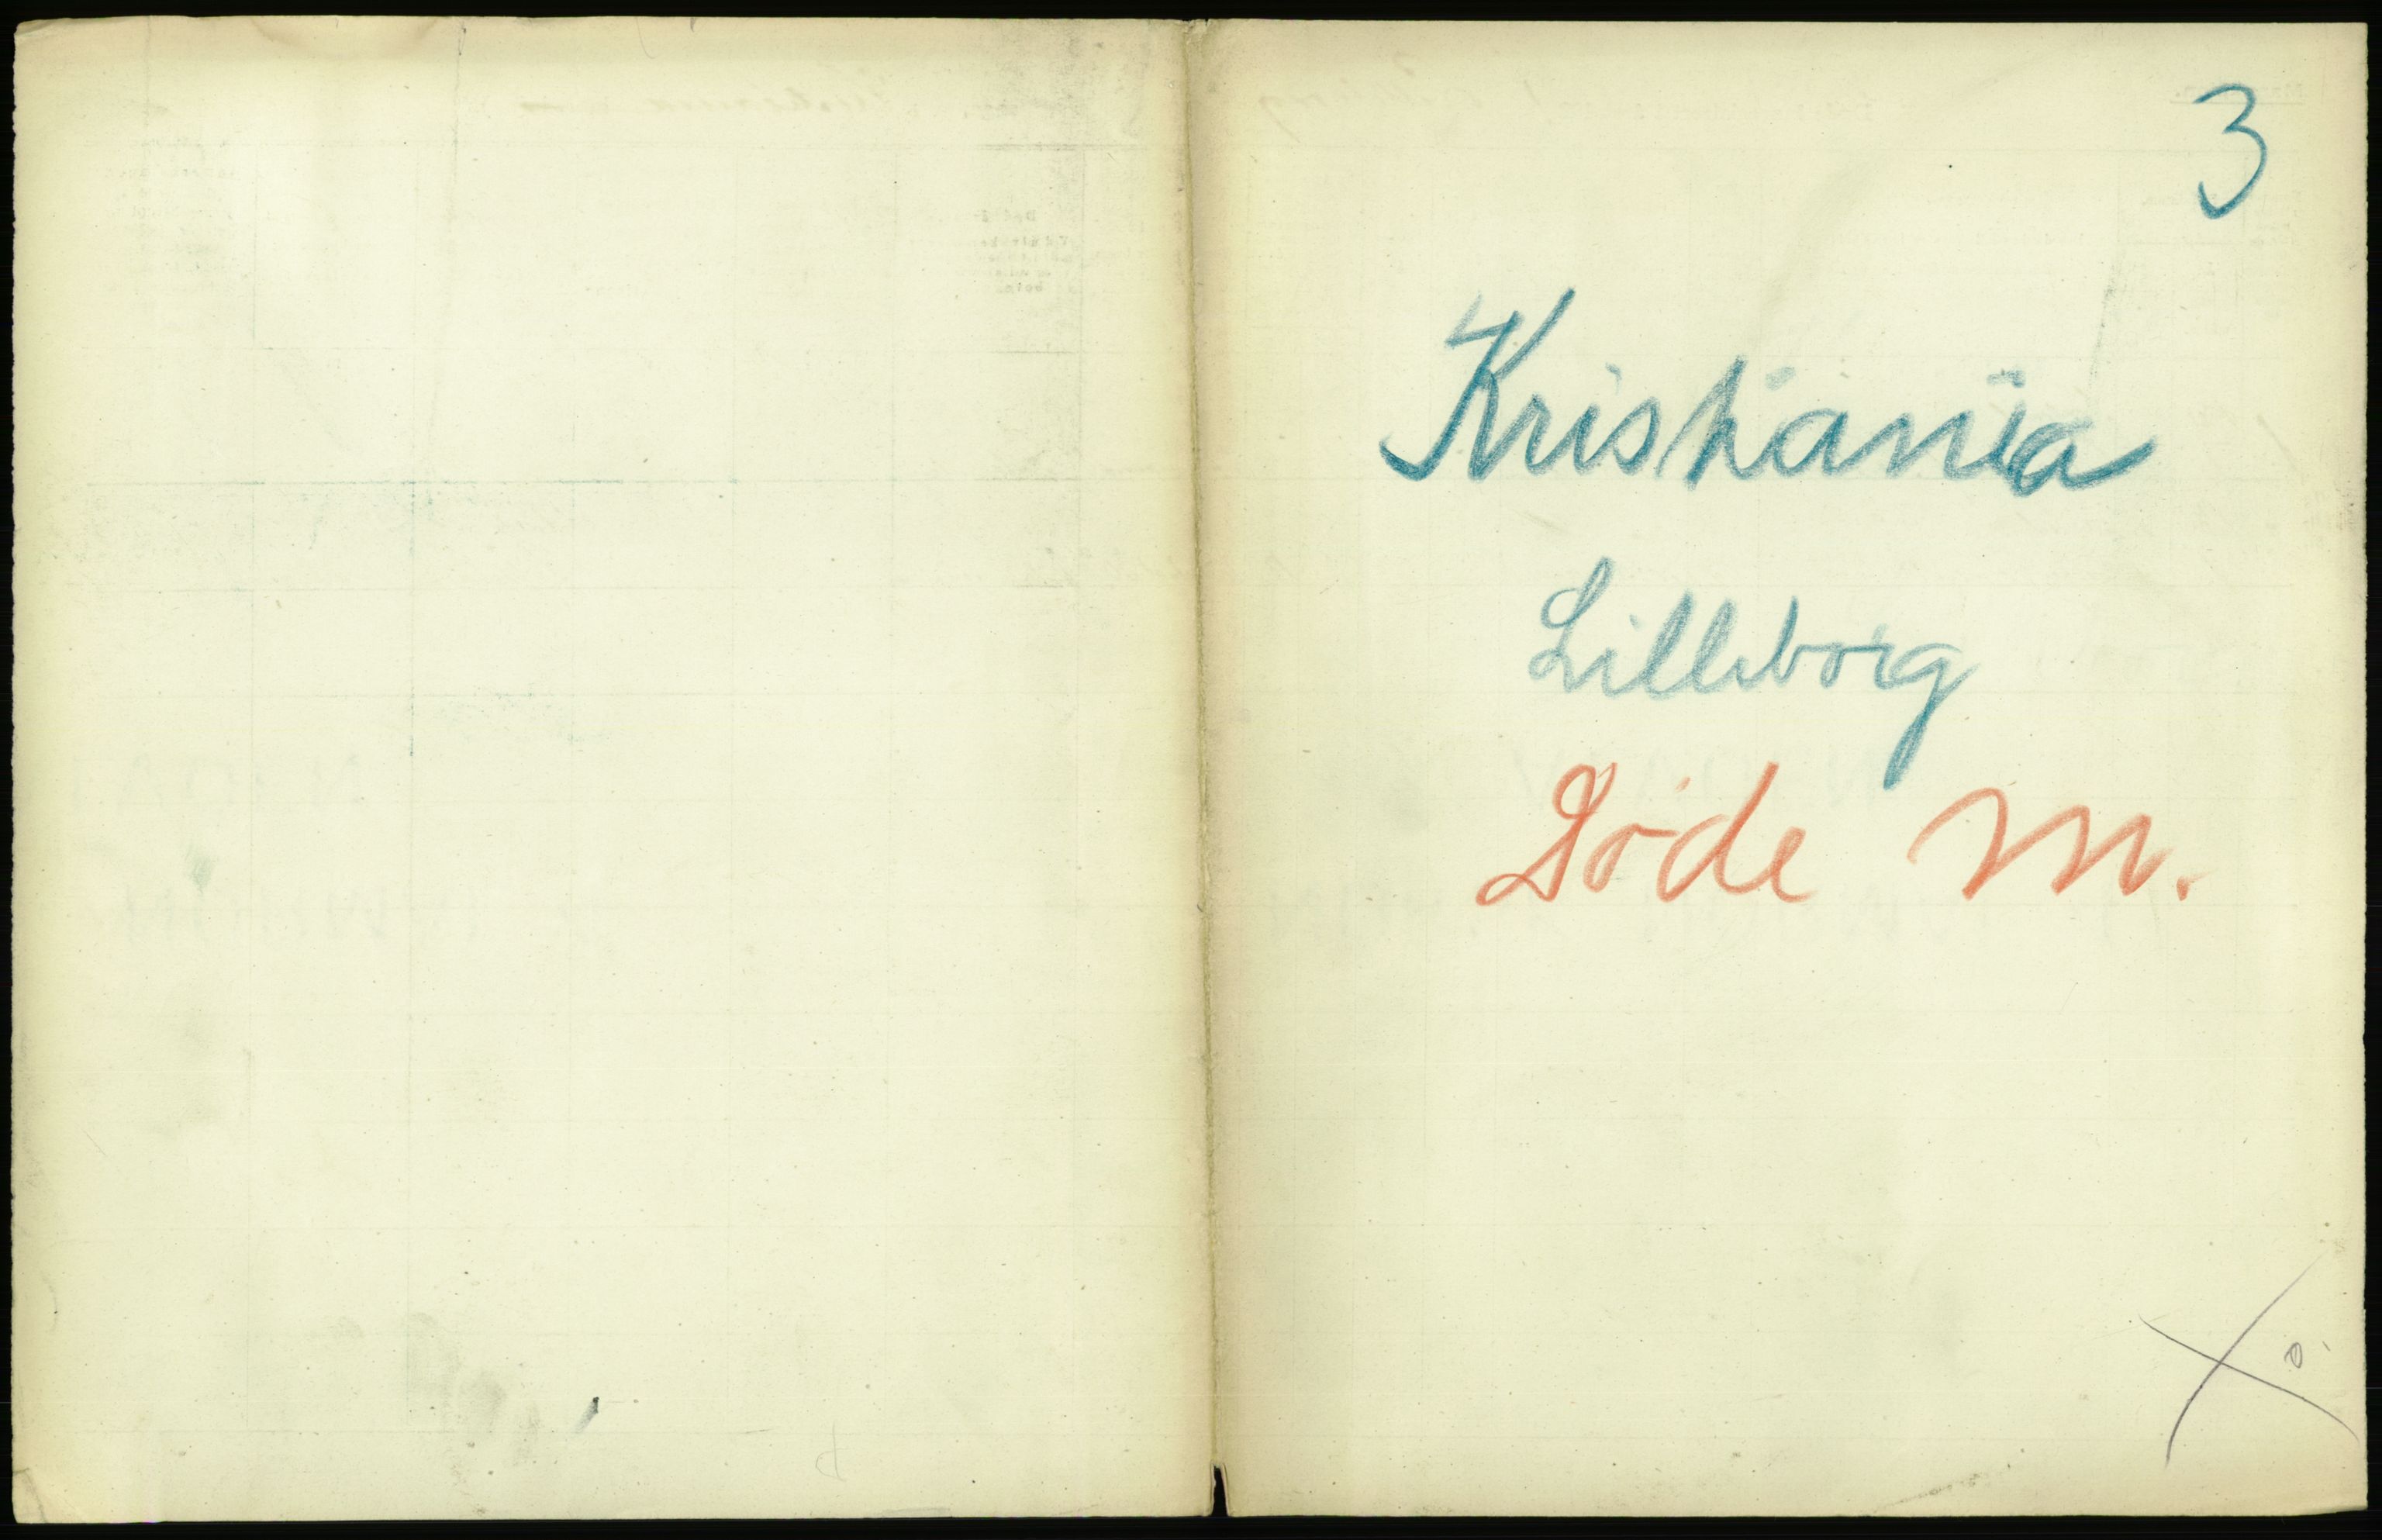 3
Kristiania
Lilleborg
Døde M.
o.